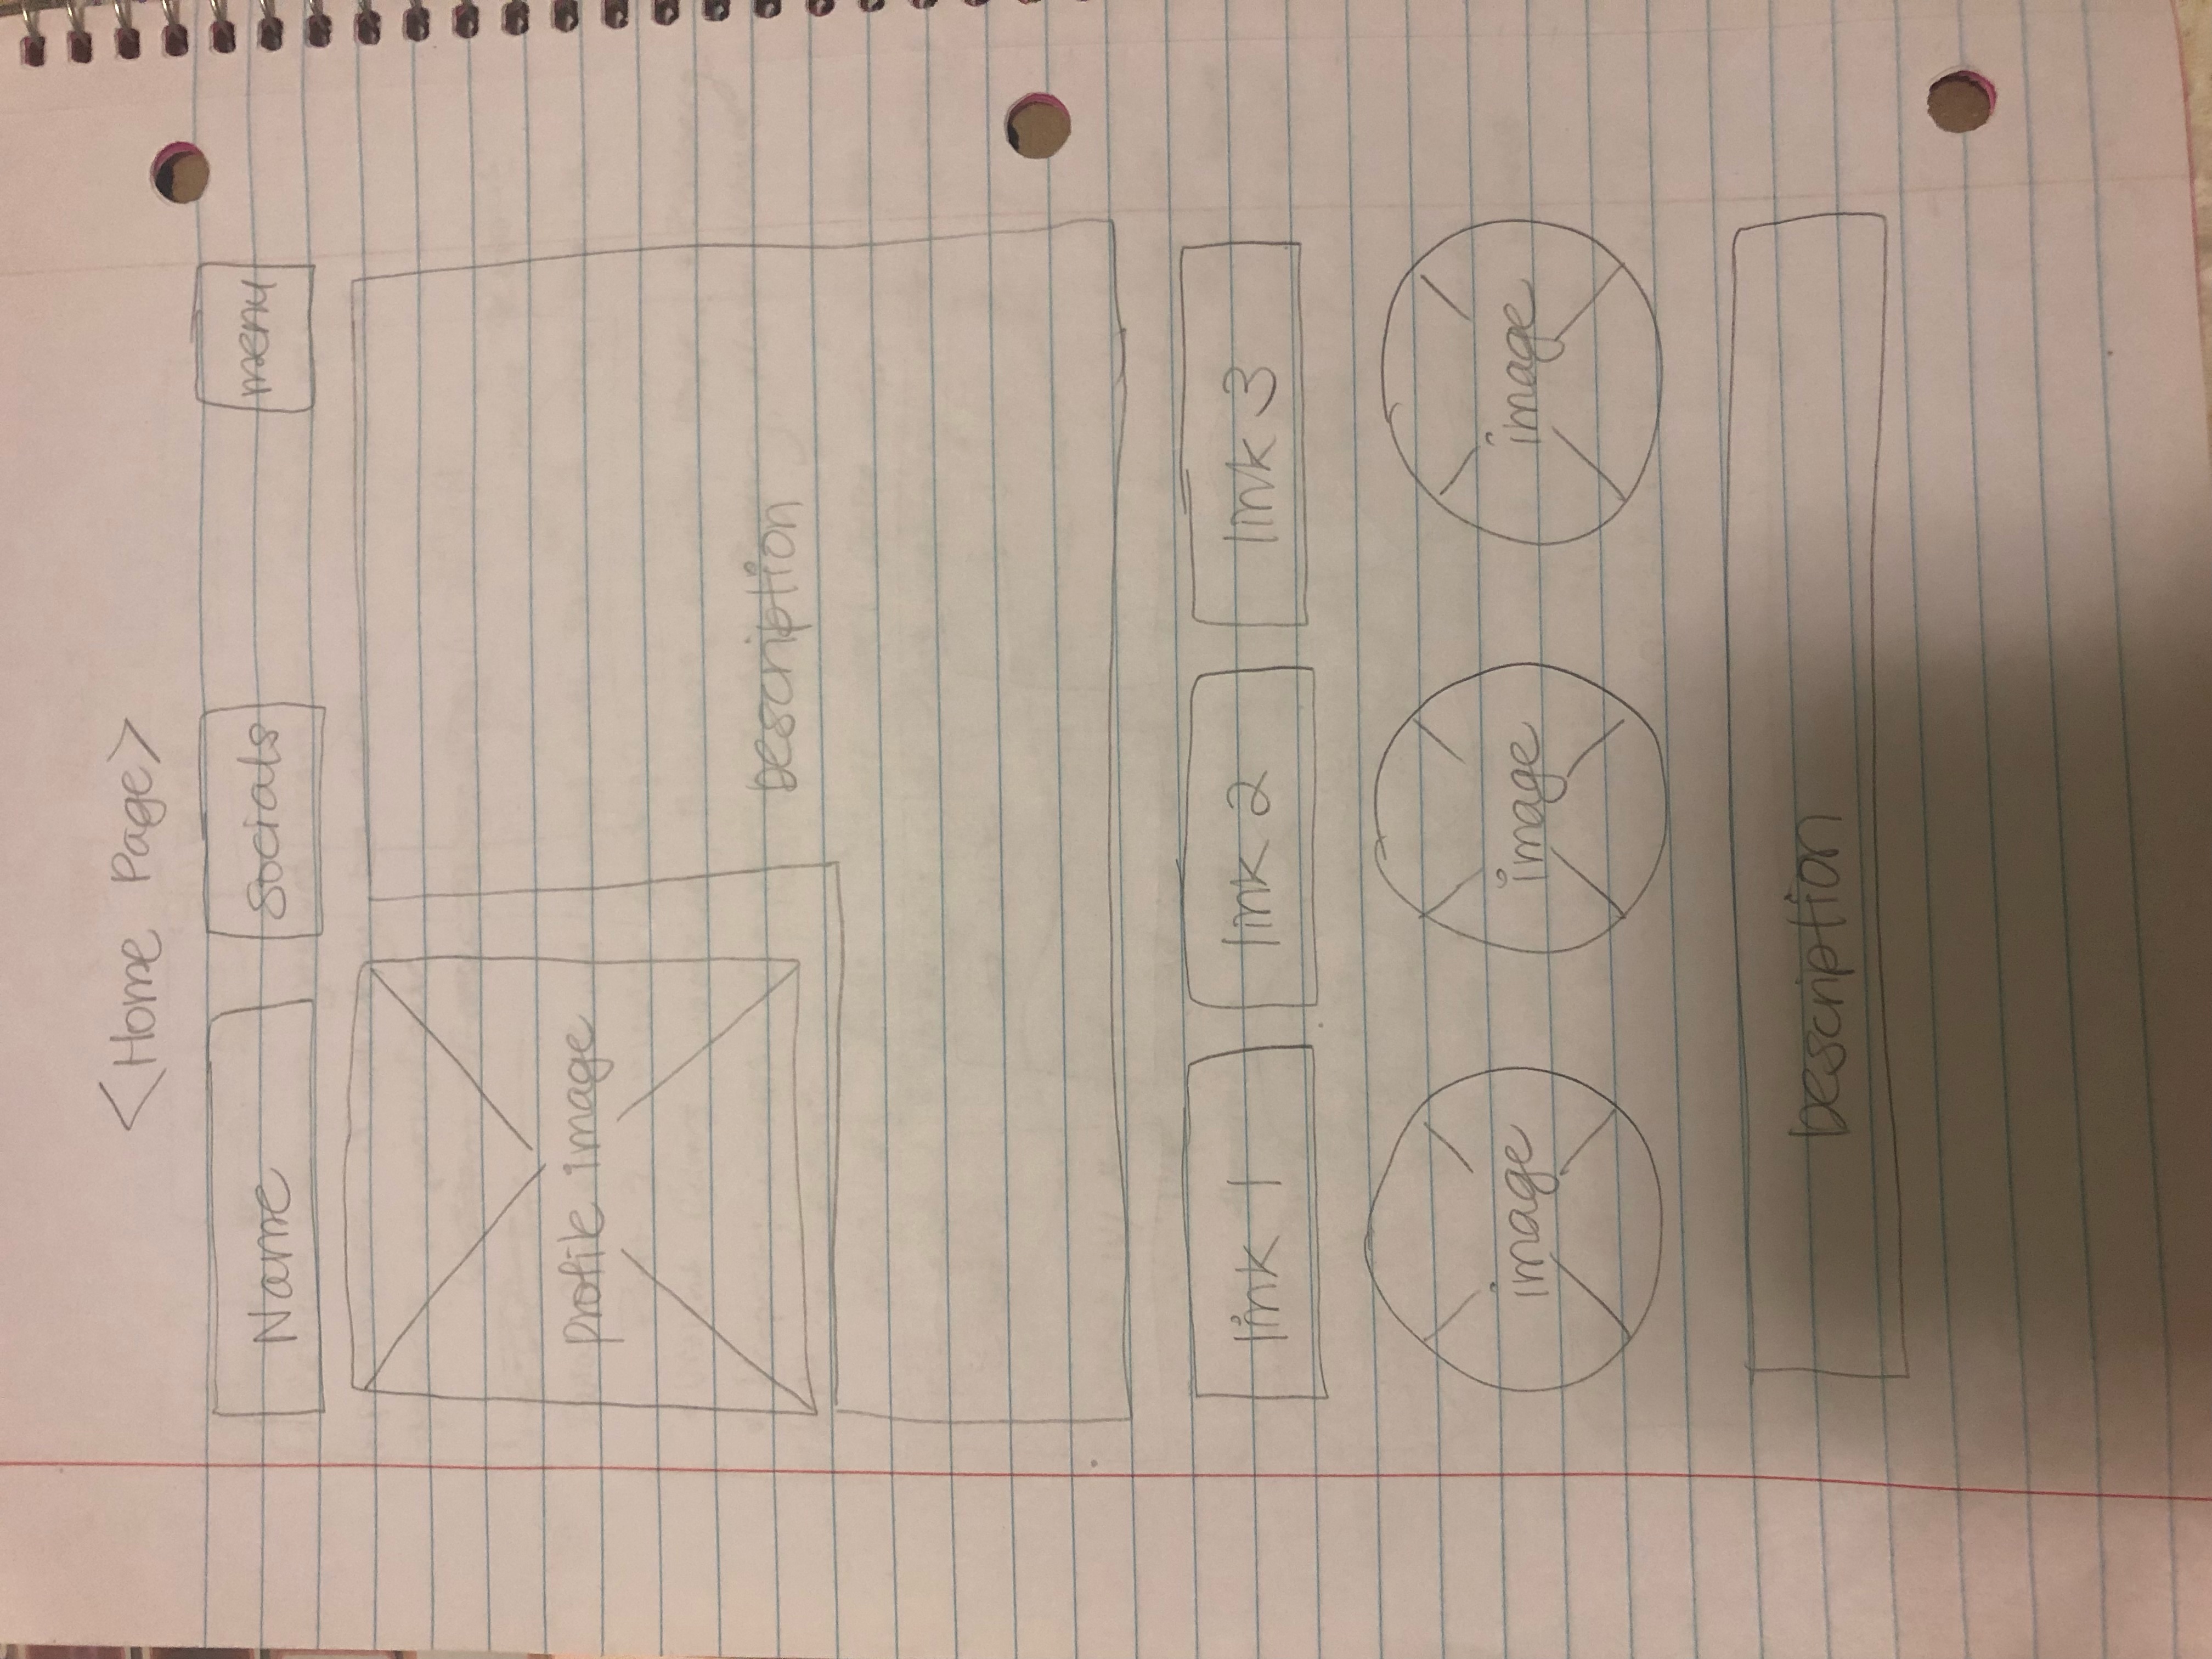 <Home Page>
Name socials menu
profile image
Description
link 1 link 2 link 3
image image image
Description